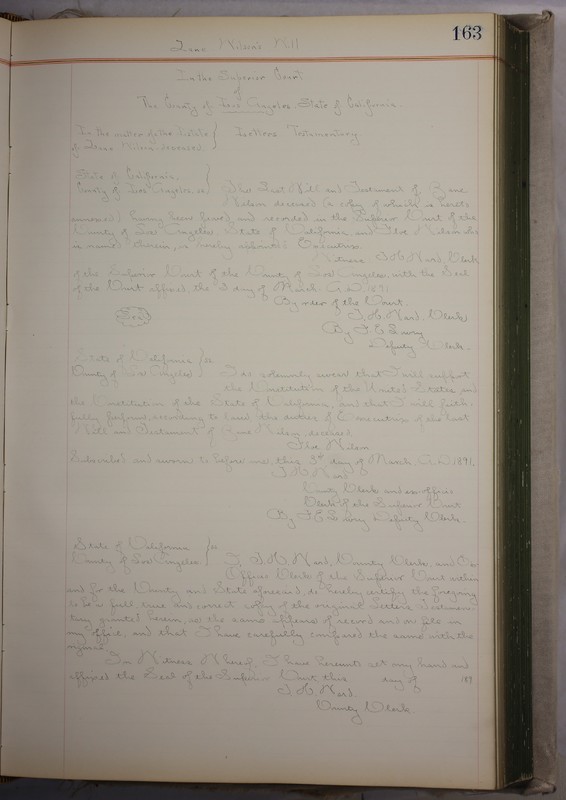 163
Wilson's Will
In the Superior Court
of
The County of Los Angeles, State of California.
In the matter of the Estate } Letters Testamentary
of Wilson deceased
State of California,
County of Los Angeles, ss } The Last Will and Testament of
Wilson deceased (a copy of which is hereto
annexed) having been proved and recorded in the Superior Court of the
County of Los Angeles State of California, and Wilson who
is named therein, is hereby appointed Executrix.
Witness T. H. Ward, Clerk
of the Superior Court of the County of Los Angeles, with the Seal
of the Court affixed, the 3 day of March A.D. 1891
By order of the Court.
(Seal) T. H. Ward, Clerk
By F. E. Lowry
Deputy Clerk.
State of California } ss
County of Los Angeles I do solemnly swear that I will support
the Constitution of the United States, and
the Constitution of the State of California, and that I will faith-
fully perform, according to law, the duties of Executrix of the last
Will and Testament of Wilson, deceased
Wilson
Subscribed and sworn to before me, this 3rd day of March, A.D. 1891.
T. H. Ward
County Clerk and ex-officio
Clerk of the Superior Court
By F. E. Lowry Deputy Clerk.
State of California } ss
County of Los Angeles. I, T. H. Ward, County Clerk, and Ex
Officio Clerk of the Superior Court within
and for the County and State aforesaid, do hereby certify the foregoing
to be a full, true and correct copy of the original Letters Testamen-
tary granted herein, as the same appears of record and on file in
my office, and that I have carefully compared the same with the
original.
In Witness Whereof, I have hereunto set my hand and
affixed the Seal of the Superior Court this day of 189
T. H. Ward.
County Clerk